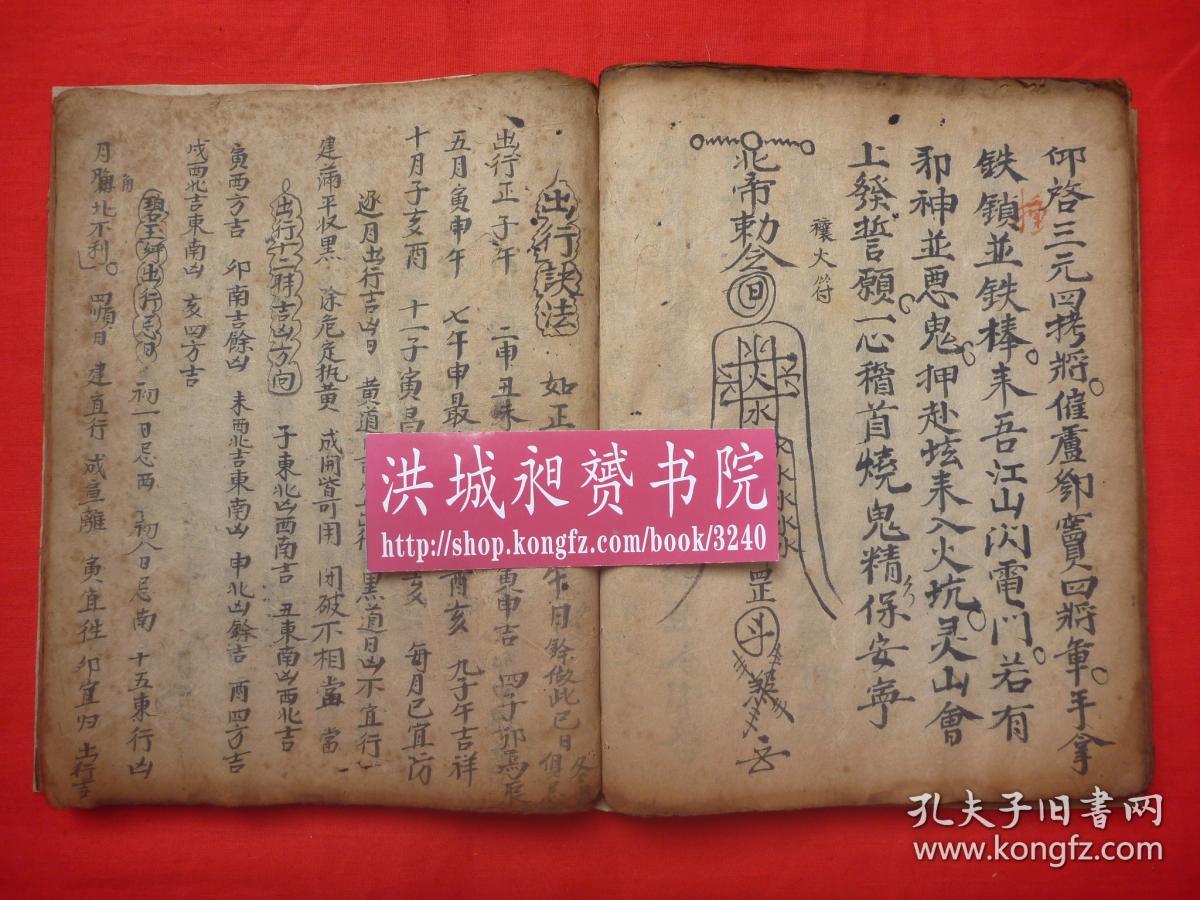 仰啓三元四拷將催盧鄧竇四將軍手拿
鉄鎖並鉄棒来吾江山闪電门若有
撞
邪神並悪鬼押赴垓来入火坑灵山會
上發誓願一心稽首燒鬼精保安寧
禳火符
北帝勅令
火
水
水
水
水
罡
斗
出行訣法
如正
午日餘倣此巳日但忌
出行正子午 二申丑未
寅申吉 四子卯爲辰
五月寅申午 七午申最
酉亥 九子午吉祥
十月子亥酉 十一子寅昌
亥 每月巳宜防
逐月出行吉凶日 黄道
黑道日凶不宜行
建满平收黑 除危定执黄 成開皆可用 闭破不相當 當
出行十二時吉凶方向 子東北凶西南吉 丑東南凶西北吉
寅西方吉 卯南吉餘凶 未西北吉東南凶 申北凶餘吉 酉四方吉
戌西北吉東南凶 亥四方吉
出行忌日 初一日忌西 初八日忌南 十五東行凶
月晦北不利 日 建宜行 成宜離 寅宜往 卯宜归 出行吉
洪城昶赟书院
http://shop.kongfz.com/book/3240
孔夫子旧书网
www.kongfz.com